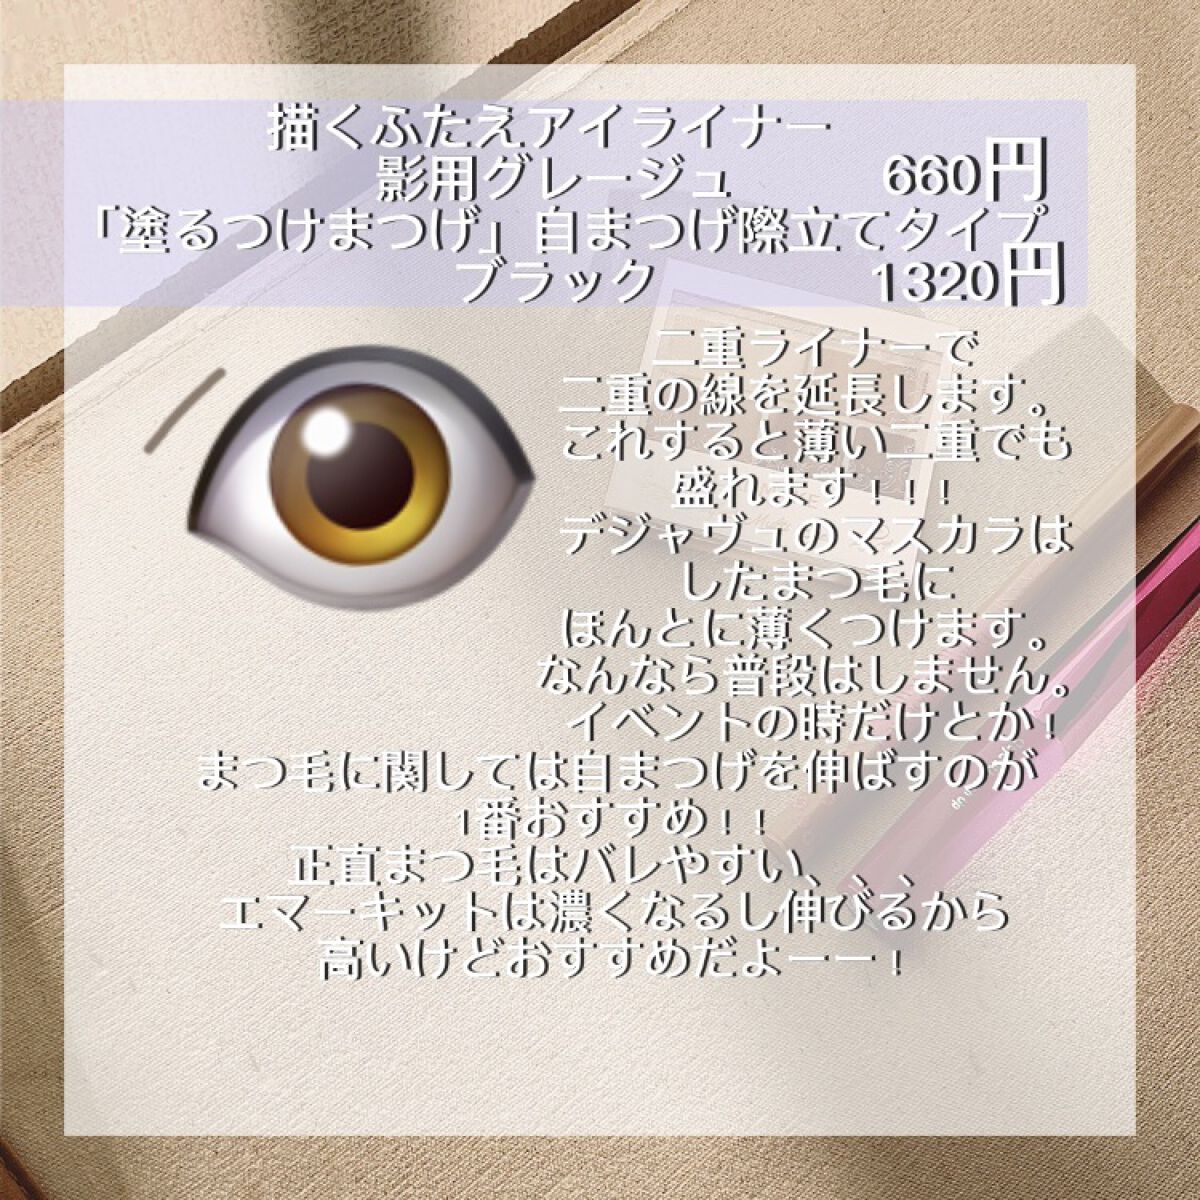 描くふたえアイライナー
影用グレージュ 660円
「塗るつけまつげ」自まつげ際立てタイプ
ブラック 1320円
二重ライナーで
二重の線を延長します。
これすると薄い二重でも
盛れます!!!
デジャヴュのマスカラは
したまつ毛に
ほんとに薄くつけます。
なんなら普段はしません。
イベントの時だけとか!
まつ毛に関しては自まつげを伸ばすのが
1番おすすめ!!
正直まつ毛はバレやすい、、、
エマーキットは濃くなるし伸びるから
高いけどおすすめだよーー!